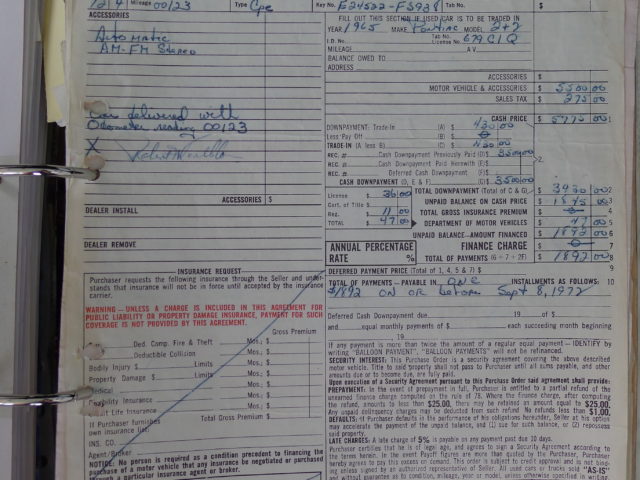 Mileage 00123 Type Cpe Key No. E24522-F5928 Tab No.
ACCESSORIES
Automatic
AM-FM Stereo
Car delivered with
Odometer reading 00123
X
ACCESSORIES $
DEALER INSTALL
DEALER REMOVE
INSURANCE REQUEST
Purchaser requests the following insurance through the Seller and under-
stands that insurance will not be in force until accepted by the insurance
carrier.
WARNING – UNLESS A CHARGE IS INCLUDED IN THIS AGREEMENT FOR
PUBLIC LIABILITY OR PROPERTY DAMAGE INSURANCE, PAYMENT FOR SUCH
COVERAGE IS NOT PROVIDED BY THIS AGREEMENT.
Gross Premium
Ded. Comp. Fire & Theft Mos.; $
Deductible Collision Mos.; $
Bodily Injury $ Limits Mos.; $
Property Damage $ Limits Mos.; $
Medical Mos.; $
Disability Insurance Mos.; $
Credit Life Insurance Mos.; $
If Purchaser furnishes Total Gross Premium $
own insurance list:
INS. CO.
Agent/Broker
NOTICE: No person is required as a condition precedent to financing the
purchase of a motor vehicle that any insurance be negotiated or purchased
through a particular insurance agent or broker.
FILL OUT THIS SECTION IF USED CAR IS TO BE TRADED IN
YEAR 1965 MAKE Pontiac MODEL 2+2
I.D. No. Tab No. License No. 679 CIQ
MILEAGE A.V.
BALANCE OWED TO
ADDRESS
ACCESSORIES $
MOTOR VEHICLE & ACCESSORIES $ 5500 00
SALES TAX $ 275 00
CASH PRICE $ 5775 00 1
DOWNPAYMENT: Trade-in (A) $ 430 00
Less Pay Off (B) $ 0
TRADE-IN (A less B) (C) $ 430 00
REC. # Cash Downpayment Previously Paid (D) $ 3500 00
REC. # Cash Downpayment Paid Herewith (E) $
REC. # Deferred Cash Downpayment (F) $
CASH DOWNPAYMENT (D, E & F) $ 3500 00
License $ 36 00 TOTAL DOWNPAYMENT (Total of C & G) $ 3930 00 2
Cert. of Title $ UNPAID BALANCE ON CASH PRICE $ 1845 00 3
Reg. $ 11 00 TOTAL GROSS INSURANCE PREMIUM $ 0 4
TOTAL $ 47 00 DEPARTMENT OF MOTOR VEHICLES $ 47 00 5
UNPAID BALANCE—AMOUNT FINANCED $ 1892 00 6
ANNUAL PERCENTAGE FINANCE CHARGE $ 0 7
RATE % TOTAL OF PAYMENTS (6 + 7 = 8) $ 1892 00 8
DEFERRED PAYMENT PRICE (Total of 1, 4, 5 & 7) $ 9
TOTAL OF PAYMENTS — PAYABLE IN ONE INSTALLMENTS AS FOLLOWS: 10
$1892 ON OR before Sept 8, 1972
Deferred Cash Downpayment due 19 of $
and equal monthly payments of $ each succeeding month beginning
19
If any payment is more than twice the amount of a regular equal payment — IDENTIFY by
writing "BALLOON PAYMENT", "BALLOON PAYMENTS" will not be refinanced.
SECURITY INTEREST: This Purchase Order is a security agreement covering the above described
motor vehicle. Title to said property shall not pass to Purchaser until all sums payable, and other
amounts due or to become due, are fully paid.
Upon execution of a Security Agreement pursuant to this Purchase Order said agreement shall provide:
PREPAYMENT: In the event of prepayment in full, Purchaser is entitled to a partial refund of the
unearned finance charge computed on the rule of 78. Where the finance charge, after computing
the refund, amounts to less than $25.00, there may be retained an amount equal to $25.00.
Any unpaid delinquency charges may be deducted from such refund No refunds less than $1.00.
DEFAULTS: If Purchaser defaults in the performance of his obligations hereunder, Seller at his option
may accelerate the payment of the unpaid balance, and (1) sue for such balance, or (2) repossess
said property.
LATE CHARGES: A late charge of 5% is payable on any payment past due 10 days.
Purchaser certifies that he is of legal age, and agrees to sign a Security Agreement according to
the terms herein. In the event Payoff figures are more than quoted by the Purchaser, Purchaser
hereby agrees to pay this excess on demand. This order is subject to credit approval and is not bind-
ing unless signed by an authorized representative of Seller. All used cars or trucks sold "AS-IS"
and without guarantee as to condition, mileage, year or model, unless otherwise specified in writing